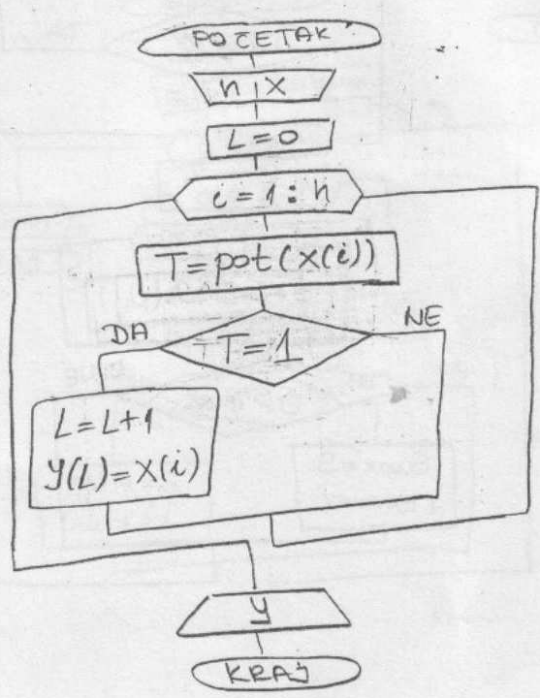 POČETAK
n, X
L=0
i=1:n
T=pot(X(i))
DA
NE
T=1
L=L+1
Y(L)=X(i)
Y
KRAJ